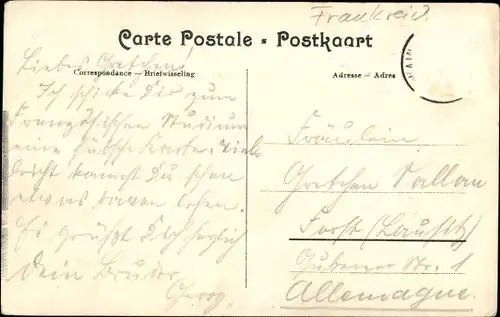 Frankreich.
Carte Postale - Postkaart
Correspondance — Briefwisseling
Adresse — Adres
Liebes Gretchen!
Ich schicke Dir zum
Französischen Studium
eine hübsche Karte. Viel-
leicht kannst Du schon
etwas davon lesen.
Es grüßt Dich herzlich
Dein Bruder
Georg.
Fräulein
Gretchen
Forst (Lausitz)
Gubener Str. 1
Allemagne.